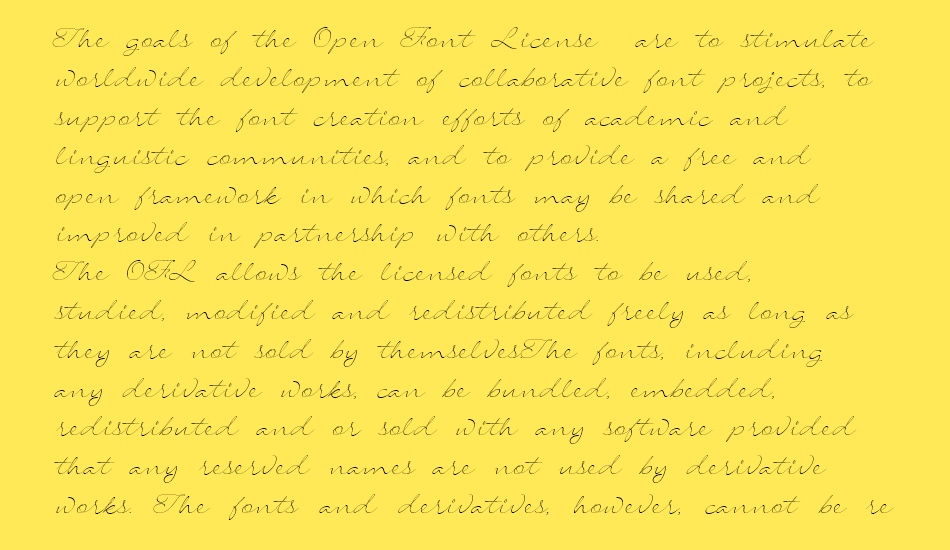 The goals of the Open Font License are to stimulate
worldwide development of collaborative font projects, to
support the font creation efforts of academic and
linguistic communities, and to provide a free and
open framework in which fonts may be shared and
improved in partnership with others.
The OFL allows the licensed fonts to be used,
studied, modified and redistributed freely as long as
they are not sold by themselvesThe fonts, including
any derivative works, can be bundled, embedded,
redistributed and or sold with any software provided
that any reserved names are not used by derivative
works. The fonts and derivatives, however, cannot be re